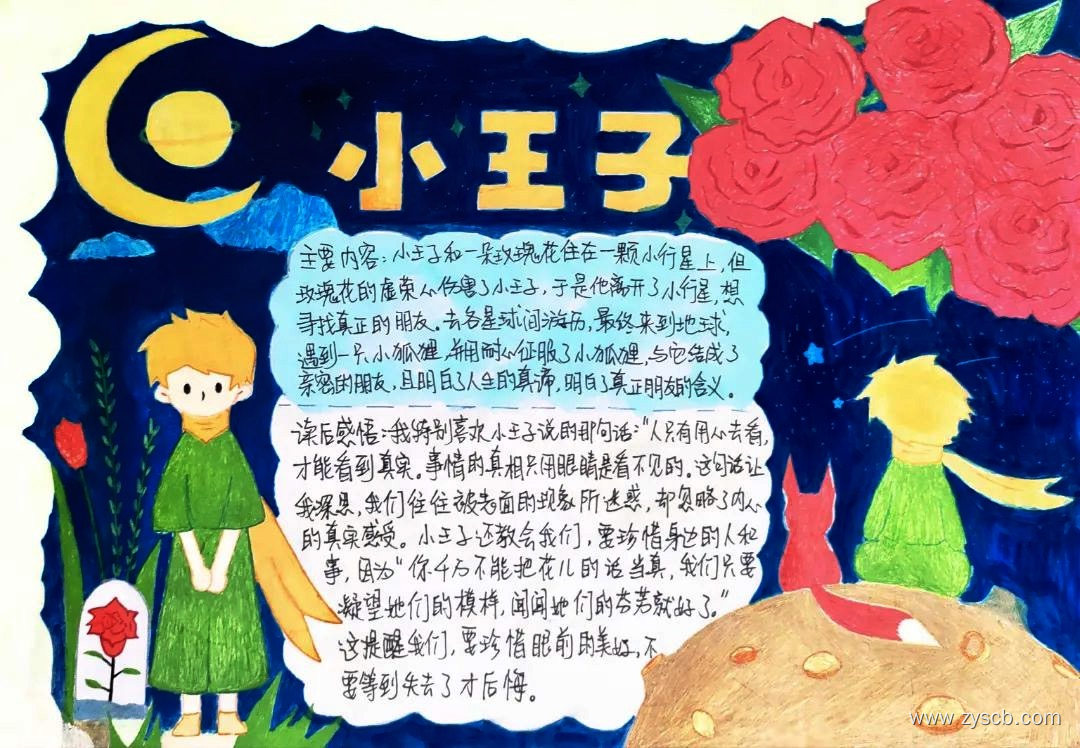 小王子
主要内容：小王子和一朵玫瑰花住在一颗小行星上，但
玫瑰花的虚荣心伤害了小王子，于是他离开了小行星，想
寻找真正的朋友。去各星球间游历，最终来到地球，
遇到一只小狐狸，并用耐心征服了小狐狸，与它结成了
亲密的朋友，且明白了人生的真谛，明白了真正朋友的含义。
读后感悟：我特别喜欢小王子说的那句话：“人只有用心去看，
才能看到真实。事情的真相只用眼睛是看不见的。这句话让
我深思，我们往往被表面的现象所迷惑，却忽略了内心
的真实感受。小王子还教会我们，要珍惜身边的人和
事，因为“你千万不能把花儿的话当真，我们只要
凝望她们的模样，闻闻她们的芬芳就好了。”
这提醒我们，要珍惜眼前的美好，不
要等到失去了才后悔。
www.zyscb.com